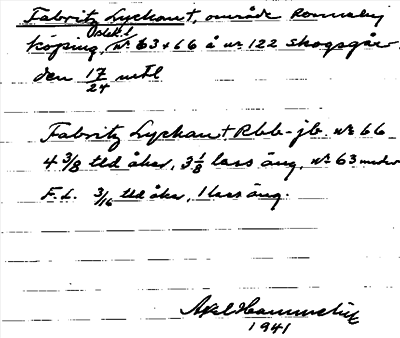 Fabritz Lyckan +, område Ronneby
Östek.1
köping, Nr 63 + 66 å nr 122 skogsgär-
den 17/24 mtl
Fabritz Lyckan + Rbb-jb. Nr 66
4 3/8 tld åker, 3 1/8 lass äng, Nr 63 under
F.L. 3/16 tld åker, 1 lass äng.
Axel
1941